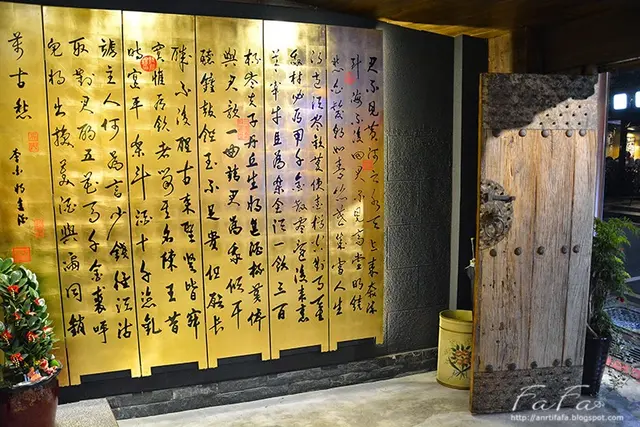 君不見黃河之水天上來奔流
到海不復回君不見高堂明鏡
悲白髮朝如青絲暮成雪人生
得意須盡歡莫使金樽空對月天
生我材必有用千金散盡還復來烹
羊宰牛且為樂會須一飲三百
杯岑夫子丹丘生將進酒杯莫停
與君歌一曲請君為我傾耳
聽鐘鼓饌玉不足貴但願長
醉不復醒古來聖賢皆寂
寞惟有飲者留其名陳王昔
時宴平樂斗酒十千恣歡
謔主人何為言少錢徑須沽
取對君酌五花馬千金裘呼
兒將出換美酒與爾同銷
萬古愁
李白將進酒
FaFa
http://anrtifafa.blogspot.com